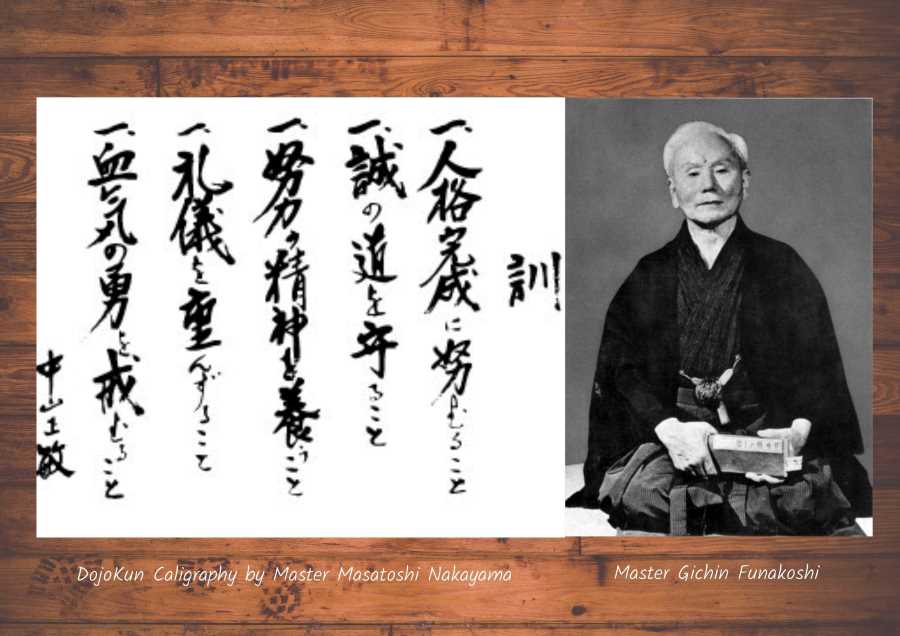 訓
一、人格完成に努むること
一、誠の道を守ること
一、努力の精神を養うこと
一、礼儀を重んずること
一、血気の勇を戒むること
中山正敏
DojoKun Caligraphy by Master Masatoshi Nakayama
Master Gichin Funakoshi